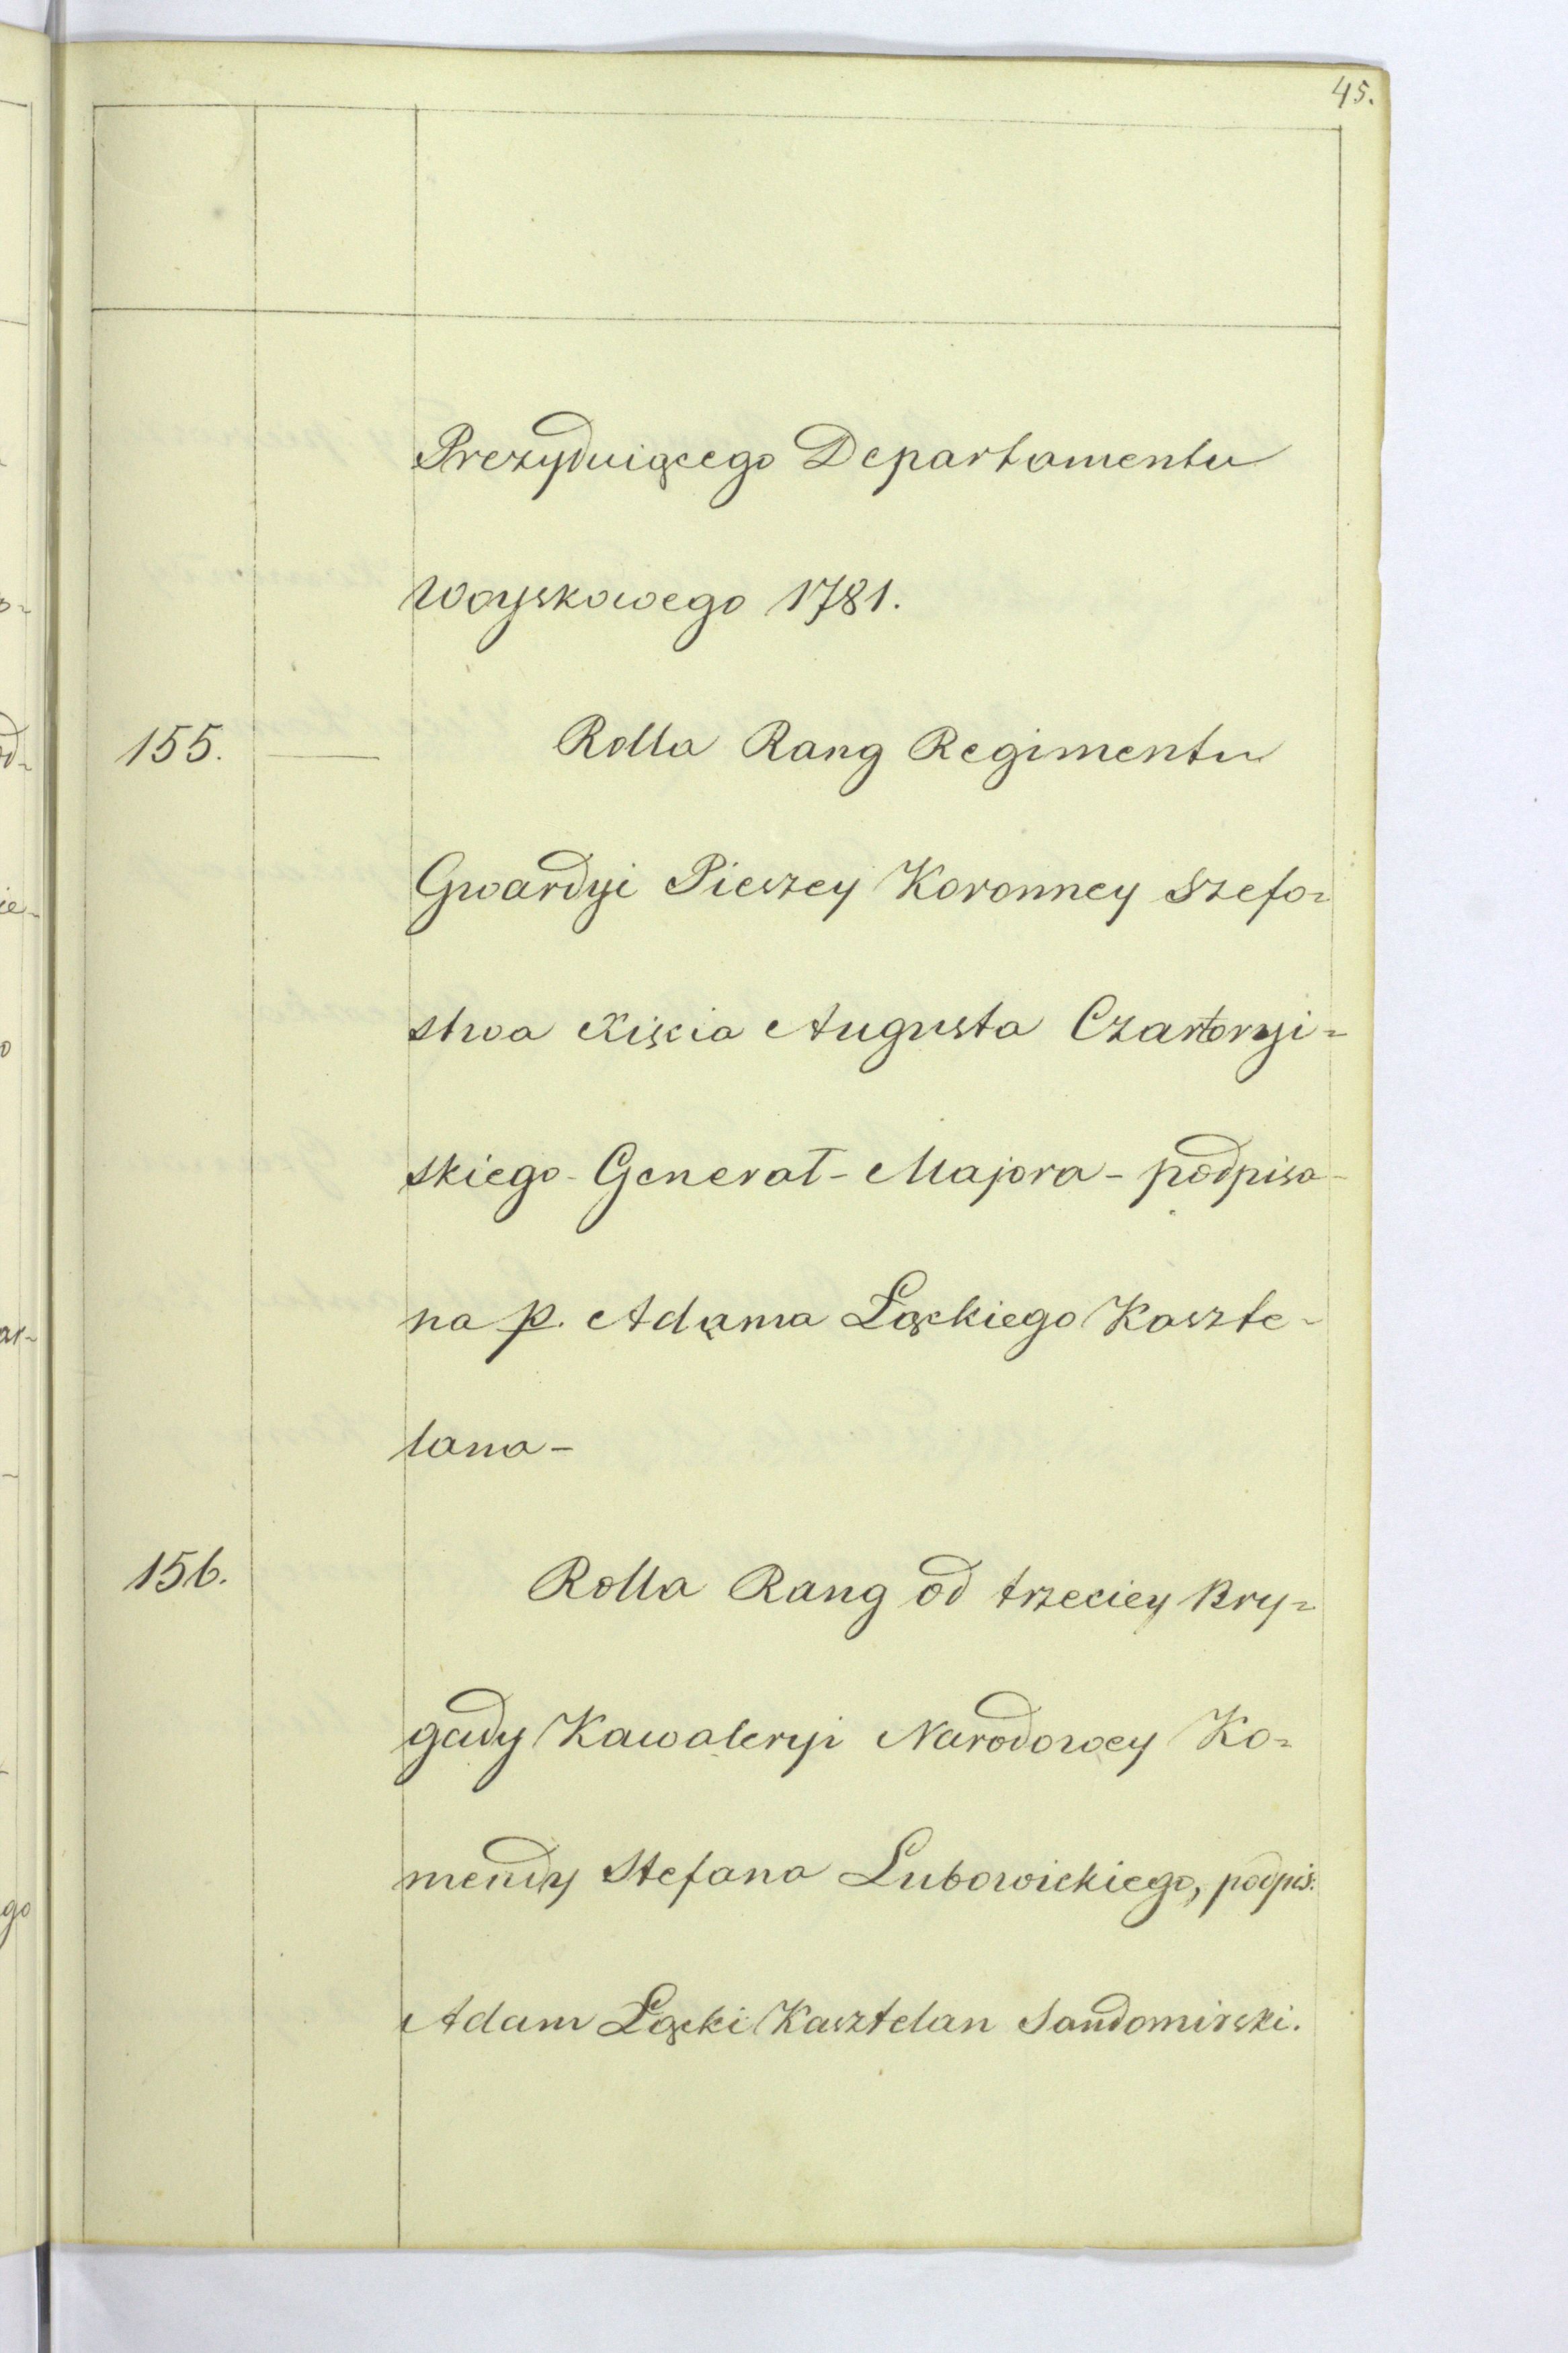 45.
Prezyduiącego Departamentu
Woyskowego 1781.
155. — Rolla Rang Regimentu
Gwardyi Pieszey Koronney Szefo=
stwa Xięcia Augusta Czartoryi=
skiego - Generał - Majora - podpisa-
na p. Adama Łąckiego Kaszte-
lana -
156. Rolla Rang od trzeciey Bry=
gady Kawaleryi Narodowey Ko=
mendy Stefana Lubowickiego, podpis:
Adam Łącki Kasztelan Sandomirski.